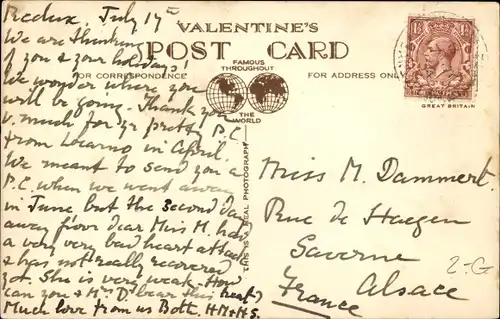 Redux. July 17th
We are thinking
of you & your holidays!
We wonder where you
will be going. Thank you
v. much for yr pretty P.C.
from Locarno in April.
We meant to send you a
P.C. when we went away
in June but the second day
away poor dear Miss M. had
a very very bad heart attack
& has not really recovered
yet. She is very weak. How
can you & Mrs D. bear this heat?
Much love from us Both. H.M & H.S.
VALENTINE'S
POST CARD
FOR CORRESPONDENCE
FAMOUS
THROUGHOUT
THE
WORLD
FOR ADDRESS ONLY
THIS IS A REAL PHOTOGRAPH
GREAT BRITAIN
Miss M. Dammert.
Rue de Haegen
Saverne
Alsace
France
2-G